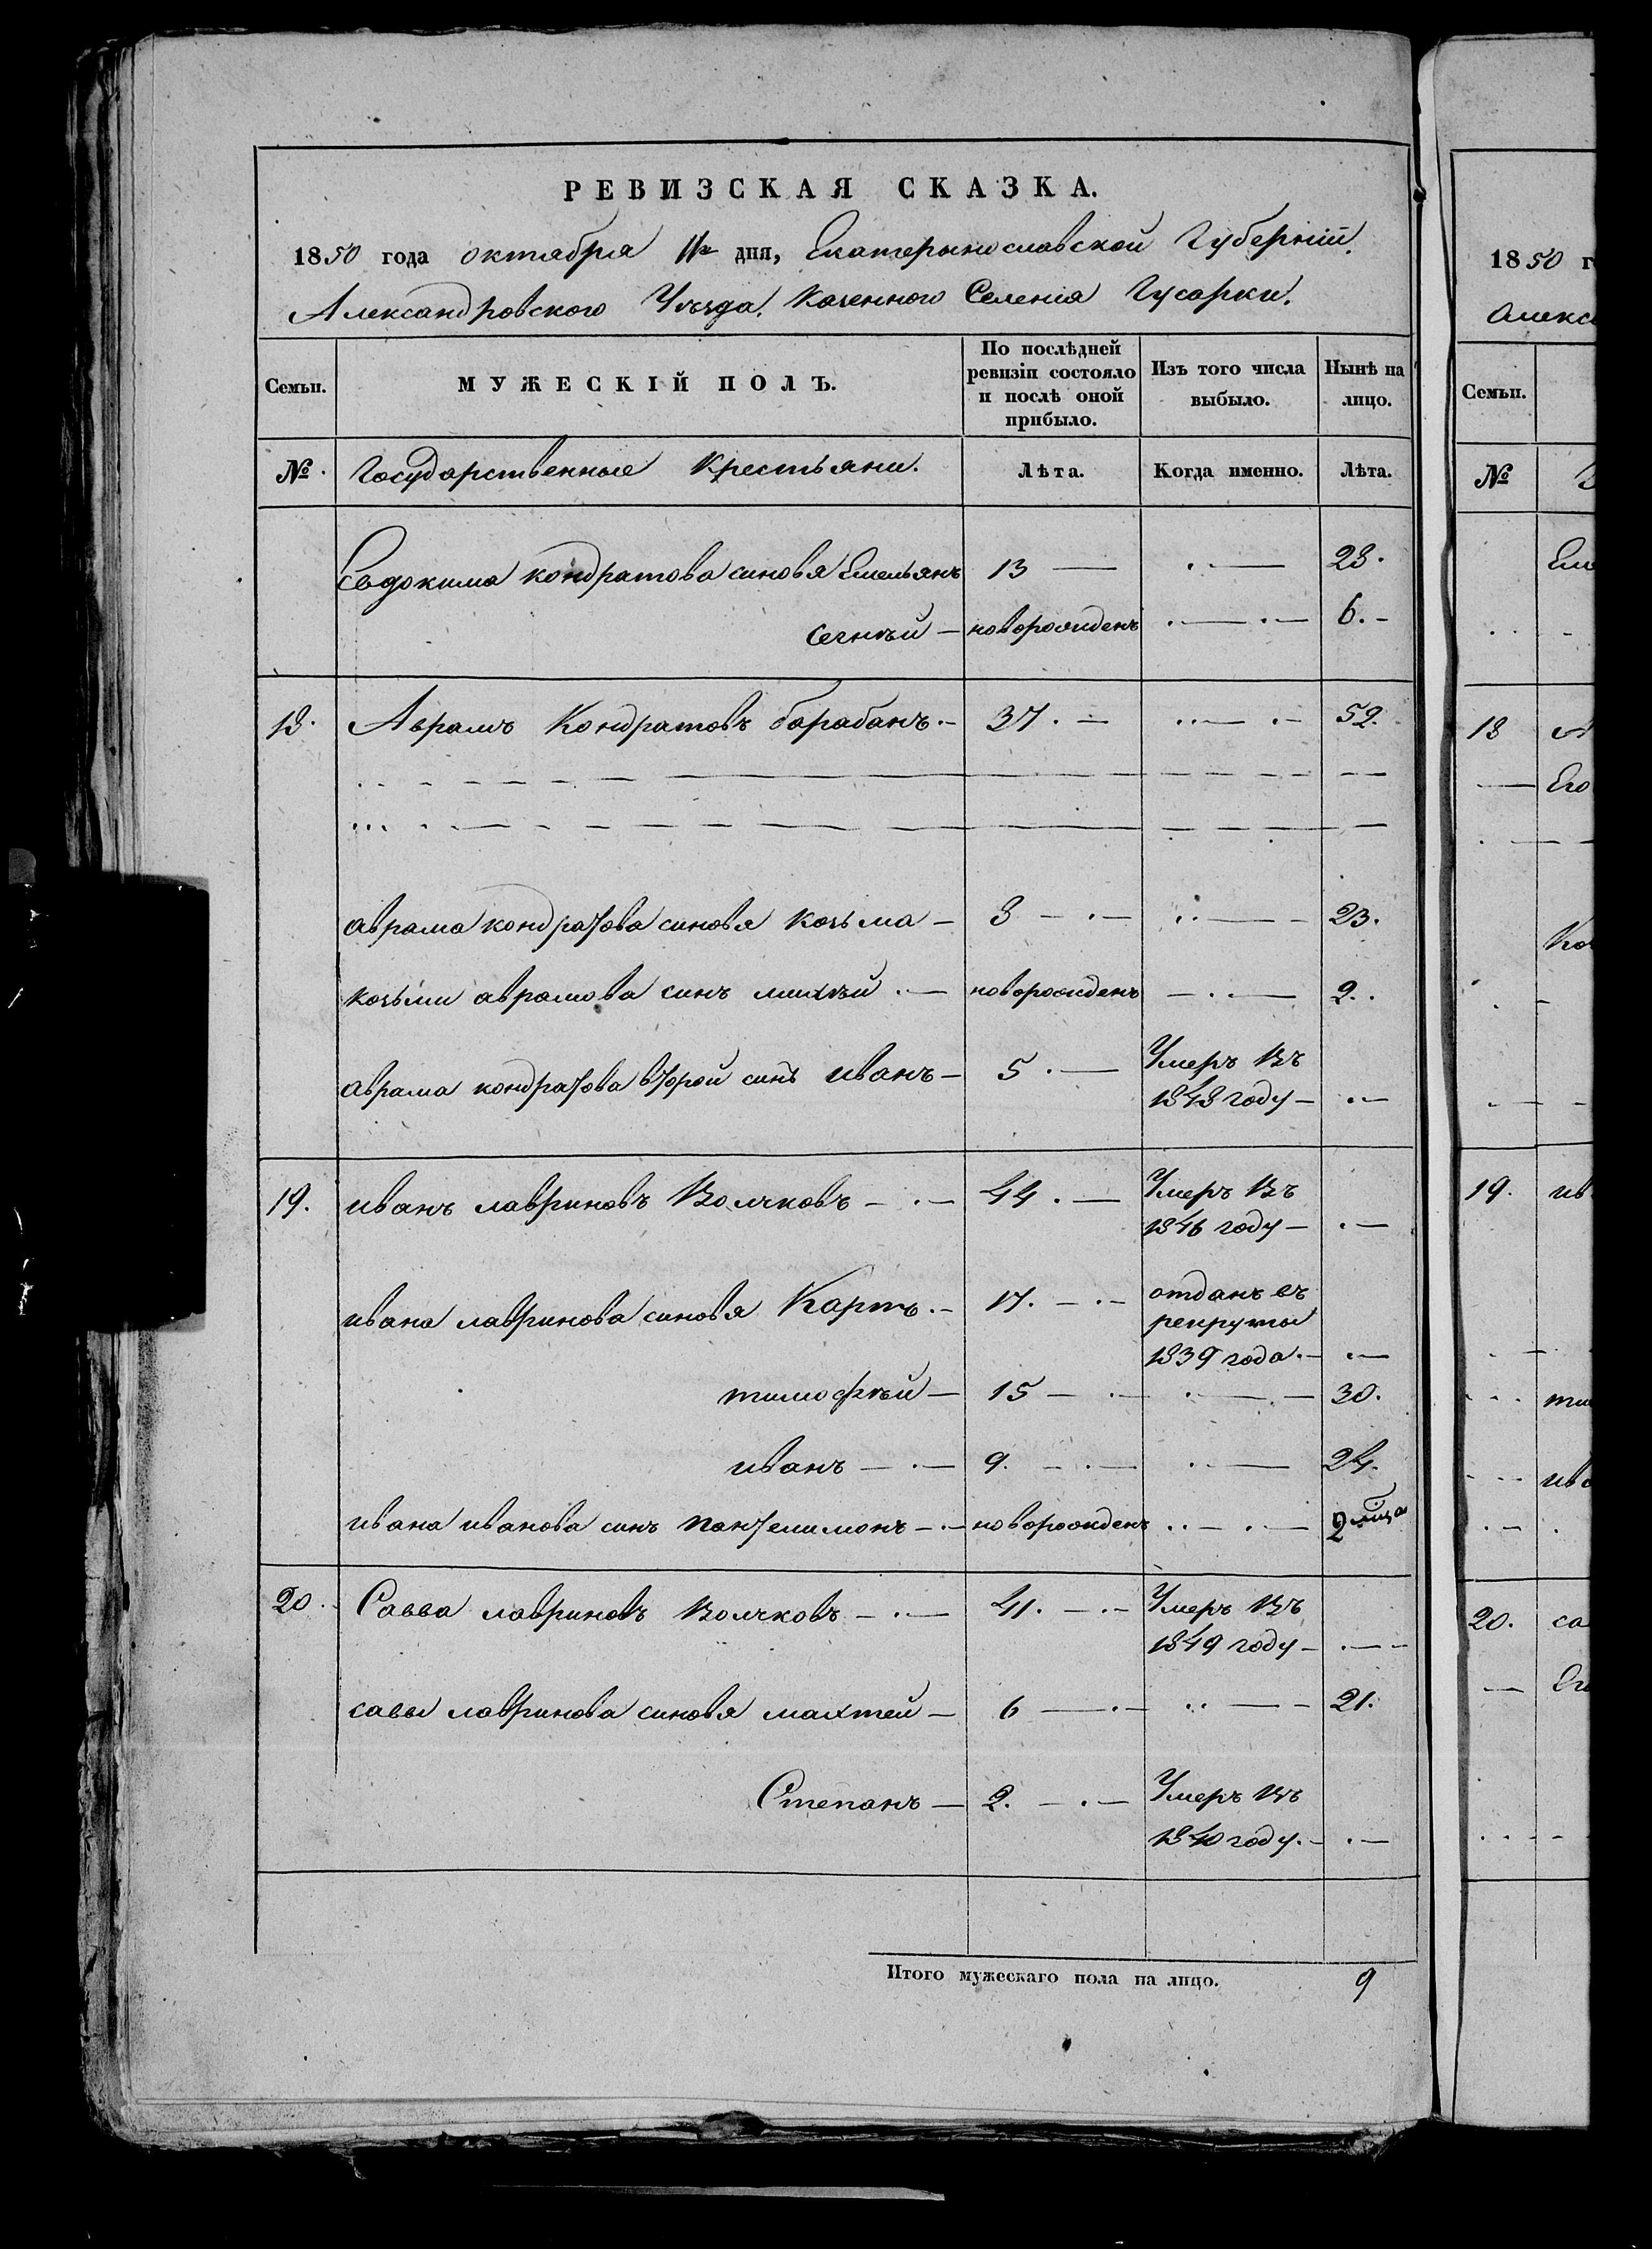 РЕВИЗСКАЯ СКАЗКА.
1850 года октября 11го дня, Екатерынославской Губерніи.
Александровского Уѣзда. Казенного Селенія Гусарки.
Семьи. МУЖЕСКІЙ ПОЛЪ. По послѣдней ревизіи состояло и послѣ оной прибыло. Изъ того числа выбыло. Нынѣ на лицо.
№. Государственные Крестьяни. Лѣта. Когда именно. Лѣта.
Евдокима кондратова синовя Емельянъ 13 — . — 28.
— новорожденъ . — . — 6. -
18. Аврамъ Кондратовъ барабанъ. - 37. — .. — . - 52.
аврама кондратова синовя козьма — 8 — . — .. — - 23.
козьми аврамова синъ михѣй . — новорожденъ — . . — 2. .
аврама кондратова второй синъ иванъ — 5 . — Умеръ Въ
1848 году — . —
19. иванъ лавриновъ Волчковъ — . — 44. — Умеръ Въ
1846 году — . —
ивана лавринова синовя Карпъ. - 17. — . - отданъ въ
рекруты
1839 года. — . —
тимофѣй — 15 — . — . — . — 30.
иванъ — . — 9. — . — . . — 24.
ивана иванова синъ пантелимонъ — . — новорожденъ . . — . — 2 мца
20. Савва лавриновъ Волчковъ — . — 41. — . - Умеръ Въ
1849 году — . — -
саввы лавринова синовя махтей — 6 — . — . . — - 21.
Степанъ — 2. — . — Умеръ Въ
1840 году. — . —
Итого мужескаго пола на лицо. 9
1850 г
Алекс
Семьи.
№
Ем
18 А
— Его
Коз
19. ив
ти
ива
20. са
— Ег